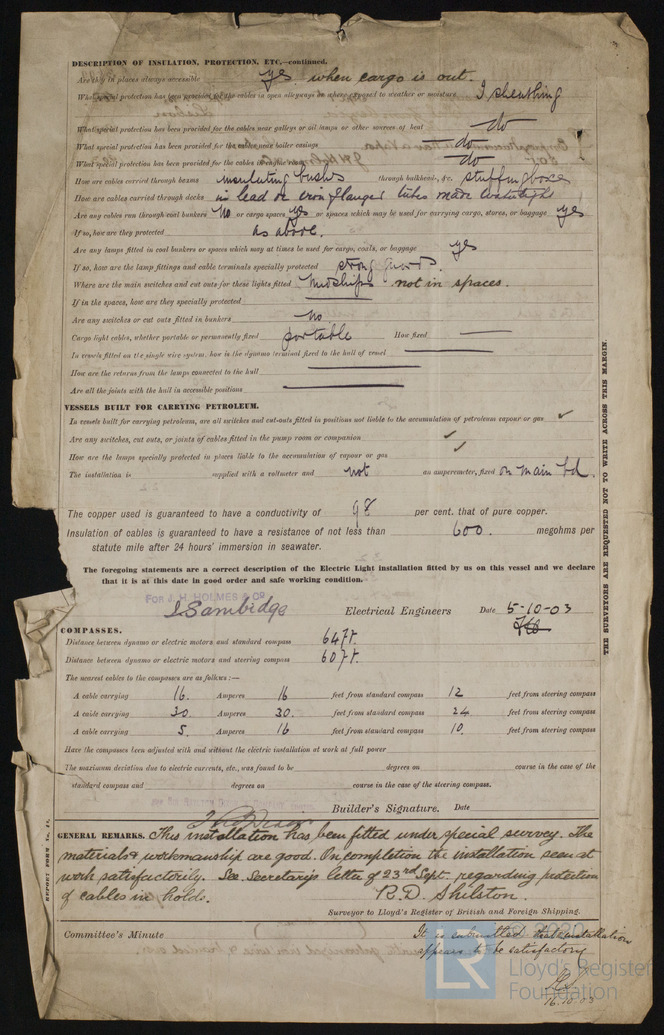 DESCRIPTION OF INSULATION, PROTECTION, ETC.—continued.
Are they in places always accessible yes when cargo is out.
What special protection has been provided for the cables in open alleyways or where exposed to weather or moisture I sheathing
What special protection has been provided for the cables near galleys or oil lamps or other sources of heat do
What special protection has been provided for the cables near boiler casings do
What special protection has been provided for the cables do
How are cables carried through beams insulating bushes through bulkheads, &c. stuffing boxes
How are cables carried through decks in lead or iron flanged tubes made watertight
Are any cables run through coal bunkers No or cargo spaces yes or spaces which may be used for carrying cargo, stores, or baggage yes
If so, how are they protected as above.
Are any lamps fitted in coal bunkers or spaces which may at times be used for cargo, coals, or baggage yes
If so, how are the lamp fittings and cable terminals specially protected strong guards.
Where are the main switches and cut outs for these lights fitted Midships not in spaces.
If in the spaces, how are they specially protected
Are any switches or cut outs fitted in bunkers No
Cargo light cables, whether portable or permanently fixed portable How fixed
In vessels fitted on the single wire system, how is the dynamo terminal fixed to the hull of vessel
How are the returns from the lamps connected to the hull
Are all the joints with the hull in accessible positions
VESSELS BUILT FOR CARRYING PETROLEUM.
In vessels built for carrying petroleum, are all switches and cut-outs fitted in positions not liable to the accumulation of petroleum vapour or gas ✓
Are any switches, cut outs, or joints of cables fitted in the pump room or companion ✓
How are the lamps specially protected in places liable to the accumulation of vapour or gas ✓
The installation is supplied with a voltmeter and not an amperemeter, fixed on main bd.
The copper used is guaranteed to have a conductivity of 98 per cent. that of pure copper.
Insulation of cables is guaranteed to have a resistance of not less than 600. megohms per
statute mile after 24 hours' immersion in seawater.
The foregoing statements are a correct description of the Electric Light installation fitted by us on this vessel and we declare
that it is at this date in good order and safe working condition.
FOR J. H. HOLMES & CO
J Sambidge Electrical Engineers Date 5-10-03
COMPASSES.
Distance between dynamo or electric motors and standard compass 64 FT.
Distance between dynamo or electric motors and steering compass 60 FT.
The nearest cables to the compasses are as follows:—
A cable carrying 16. Amperes 16 feet from standard compass 12 feet from steering compass
A cable carrying 30 Amperes 30. feet from standard compass 24 feet from steering compass
A cable carrying 5. Amperes 16 feet from standard compass 10. feet from steering compass
Have the compasses been adjusted with and without the electric installation at work at full power
The maximum deviation due to electric currents, etc., was found to be degrees on course in the case of the
standard compass and degrees on course in the case of the steering compass.
Builder's Signature. Date
GENERAL REMARKS. This installation has been fitted under special survey. The
materials & workmanship are good. On completion the installation seen at
work satisfactorily. See Secretary's letter of 23rd Sept regarding protection
of cables in holds.
R.D. Shilston.
Surveyor to Lloyd's Register of British and Foreign Shipping.
Committee's Minute
It is submitted that the installation
appears to be satisfactory
16.10.03
THE SURVEYORS ARE REQUESTED NOT TO WRITE ACROSS THIS MARGIN.
REPORT FORM No.
LR
Lloyd's Register
Foundation